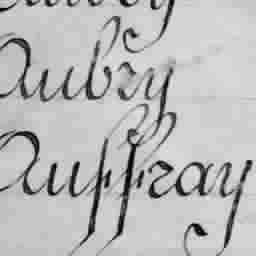 Aubry
Auffray